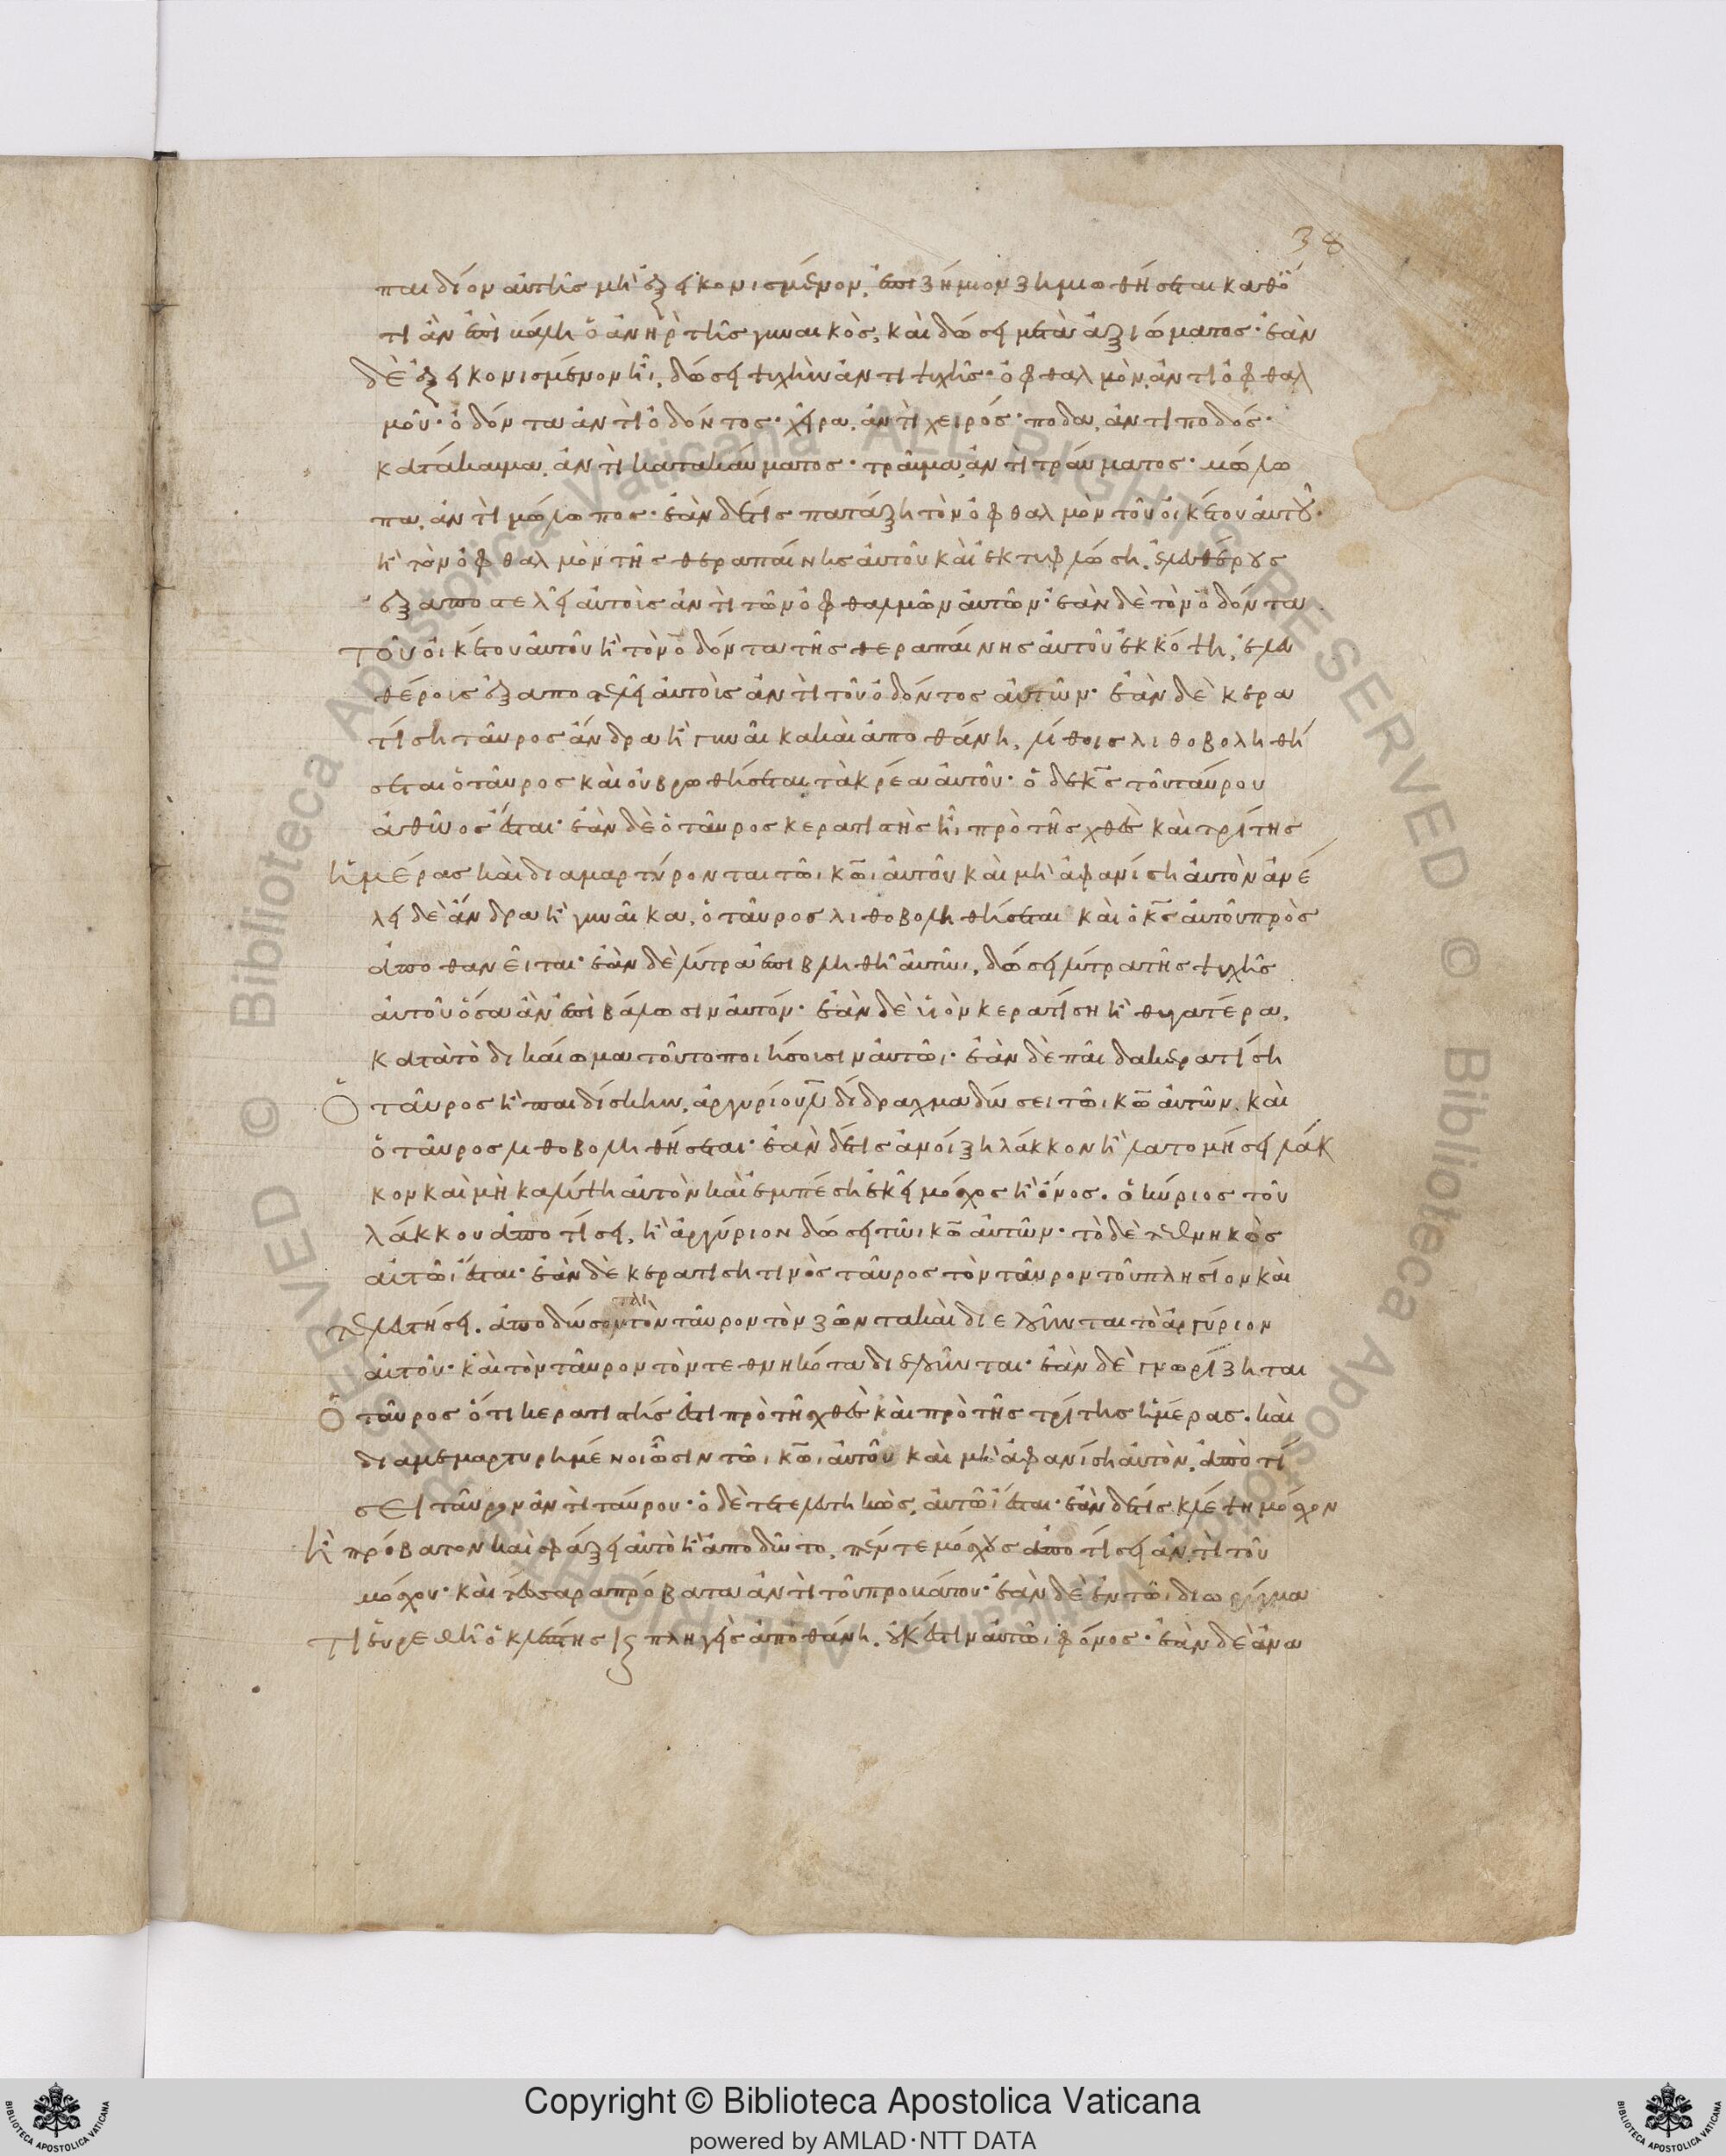 38
παιδίον ἀυτῆς μὴ ἐξεικονισμένον, ἐπιζήμιον ζημιωθήσεται καθό
τι ἂν ἐπιβάλη ὁ ἀνὴρ τῆς γυναικὸς, καὶ δώσει μετὰ ἀξιώματος· ἐὰν
δὲ ἐξεικονισμένον ἦι, δώσει ψυχὴν ἀντι ψυχῆς· ὀφθαλμὸν, ἀντὶ ὀφθαλ
μοῦ· ὀδόντα ἀντὶ ὀδόντος· χεῖρα, ἀντὶ χειρός· ποδα, ἀντι ποδός·
κατάκαυμα, ἀντὶ κατακάυματος· τράυμα, ἀντὶ τράυματος· μώλω
πα, ἀντὶ μώλωπος· ἐὰν δέ τις πατάξη τὸν ὀφθαλμὸν τοῦ οἰκέτου ἀυτοῦ·
ἢ τὸν ὀφθαλμὸν τῆς θεραπάινης ἀυτοῦ καὶ ἐκτυφλώση, ἐλευθέρους
ἐξαποστελεῖ ἀυτοὶς ἀντὶ τῶν ὀφθαλμῶν ἀυτῶν· ἐὰν δὲ τὸν ὀδόντα
τοῦ οἰκέτου ἀυτοῦ ἢ τὸν ὀδόντα τῆς θεραπάινης ἀυτοῦ ἐκκόψη, ἐλευ
θέροις ἐξαποστελεῖ ἀυτοὶς ἀντὶ τοῦ ὀδόντος ἀυτῶν· ἐὰν δὲ κερα
τίση τᾶυρος ἄνδρα ἢ γυνᾶικα καὶ ἀποθάνη, λίθοις λιθοβοληθή
σεται ὁ τᾶυρος καὶ οὐ βρωθήσεται τὰ κρέα ἀυτοῦ· ὁ δὲ κ̅ς̅ τοῦ τάυρου
ἀθῶος ἔσται· ἐὰν δὲ ὁ τᾶυρος κερατιστὴς ἦι πρὸ τῆς χθὲς καὶ τρίτης
ἡμέρας καὶ διαμαρτύρονται τῶι κ̅ω̅ι ἀυτοῦ καὶ μὴ ἀφανίση ἀυτὸν ἀνέ
λει δὲ ἄνδρα ἢ γυνᾶικα, ὁ τᾶυρος λιθοβοληθήσεται καὶ ὁ κ̅ς̅ ἀυτοῦ προσ
αποθανεῖται· ἐὰν δὲ λύτρα ἐπιβληθῆ ἀυτῶι, δώσει λύτρα τῆς ψυχῆς
ἀυτοῦ ὅσα ἂν ἐπιβάλωσιν ἀυτόν· ἐὰν δὲ ὑιὸν κερατίση ἢ θυγατέρα,
κατὰ τὸ δικάιωμα τοῦτο ποιήσοισιν ἀυτῶι· ἐὰν δὲ πᾶιδα κερατίση
ὁ τᾶυρος ἢ παιδίσκην, ἀργυρίου λ̅ δίδραχμα δώσει τῶι κ̅ω̅ ἀυτῶν, καὶ
ὁ τᾶυρος λιθοβοληθήσεται· ἐὰν δέ τις ἀνοίξη λάκκον ἢ λατομήσει λάκ
κον καὶ μὴ καλύψη ἀυτὸν καὶ ἐμπέση ἐκεῖ μόσχος ἢ ὄνος. ὁ κύριος τοῦ
λάκκου ἀποτίσει, ἢ ἀργύριον δώσει τῶι κ̅ω̅ ἀυτῶν· τὸ δὲ τεθνηκὸς
ἀυτῶι ἔσται· ἐὰν δὲ κερατιση τινὸς τᾶυρος τὸν τᾶυρον τοῦ πλησίον καὶ
τελευτήσει, ἀποδώσονται τὸν τᾶυρον τὸν ζῶντα καὶ διελοῦνται τὸ ἀργύριον
ἀυτοῦ· καὶ τὸν τᾶυρον τὸν τεθνηκότα διελοῦνται· ἐὰν δὲ γνωρίζηται
ὁ τᾶυρος ὅτι κερατιστής ἐστι πρὸ τῆς χθὲς καὶ πρὸ τῆς τρίτης ἡμέρας. καὶ
διαμεμαρτυρημένοι ὦσιν τῶι κ̅ω̅ι ἀυτοῦ καὶ μὴ ἀφανίση ἀυτὸν, ἀποτί
σει τᾶυρον ἀντὶ τάυρου· ὁ δὲ τετελευτηκὼς, ἀυτῶι ἔσται· ἐὰν δέ τις κλέψη μόσχον
ἢ πρόβατον καὶ σφάξει ἀυτὸ ἢ ἀποδῶτο, πέντε μόσχους ἀποτίσει ἀντὶ τοῦ
μόσχου· καὶ τέσσαρα πρόβατα ἀντὶ τοῦ προβάτου· ἐὰν δὲ ἐν τῶι διωρύγμα
τι ἑυρεθῆ ὁ κλέπτης πληγεὶς ἀποθάνη, οὐκ ἔστιν ἀυτῶι φόνος· ἐὰν δὲ ἀνα
© Biblioteca Apostolica Vaticana ALL RIGHTS RESERVED
Copyright © Biblioteca Apostolica Vaticana
powered by AMLAD·NTT DATA
BIBLIOTECA APOSTOLICA VATICANA
BIBLIOTECA APOSTOLICA VATICANA